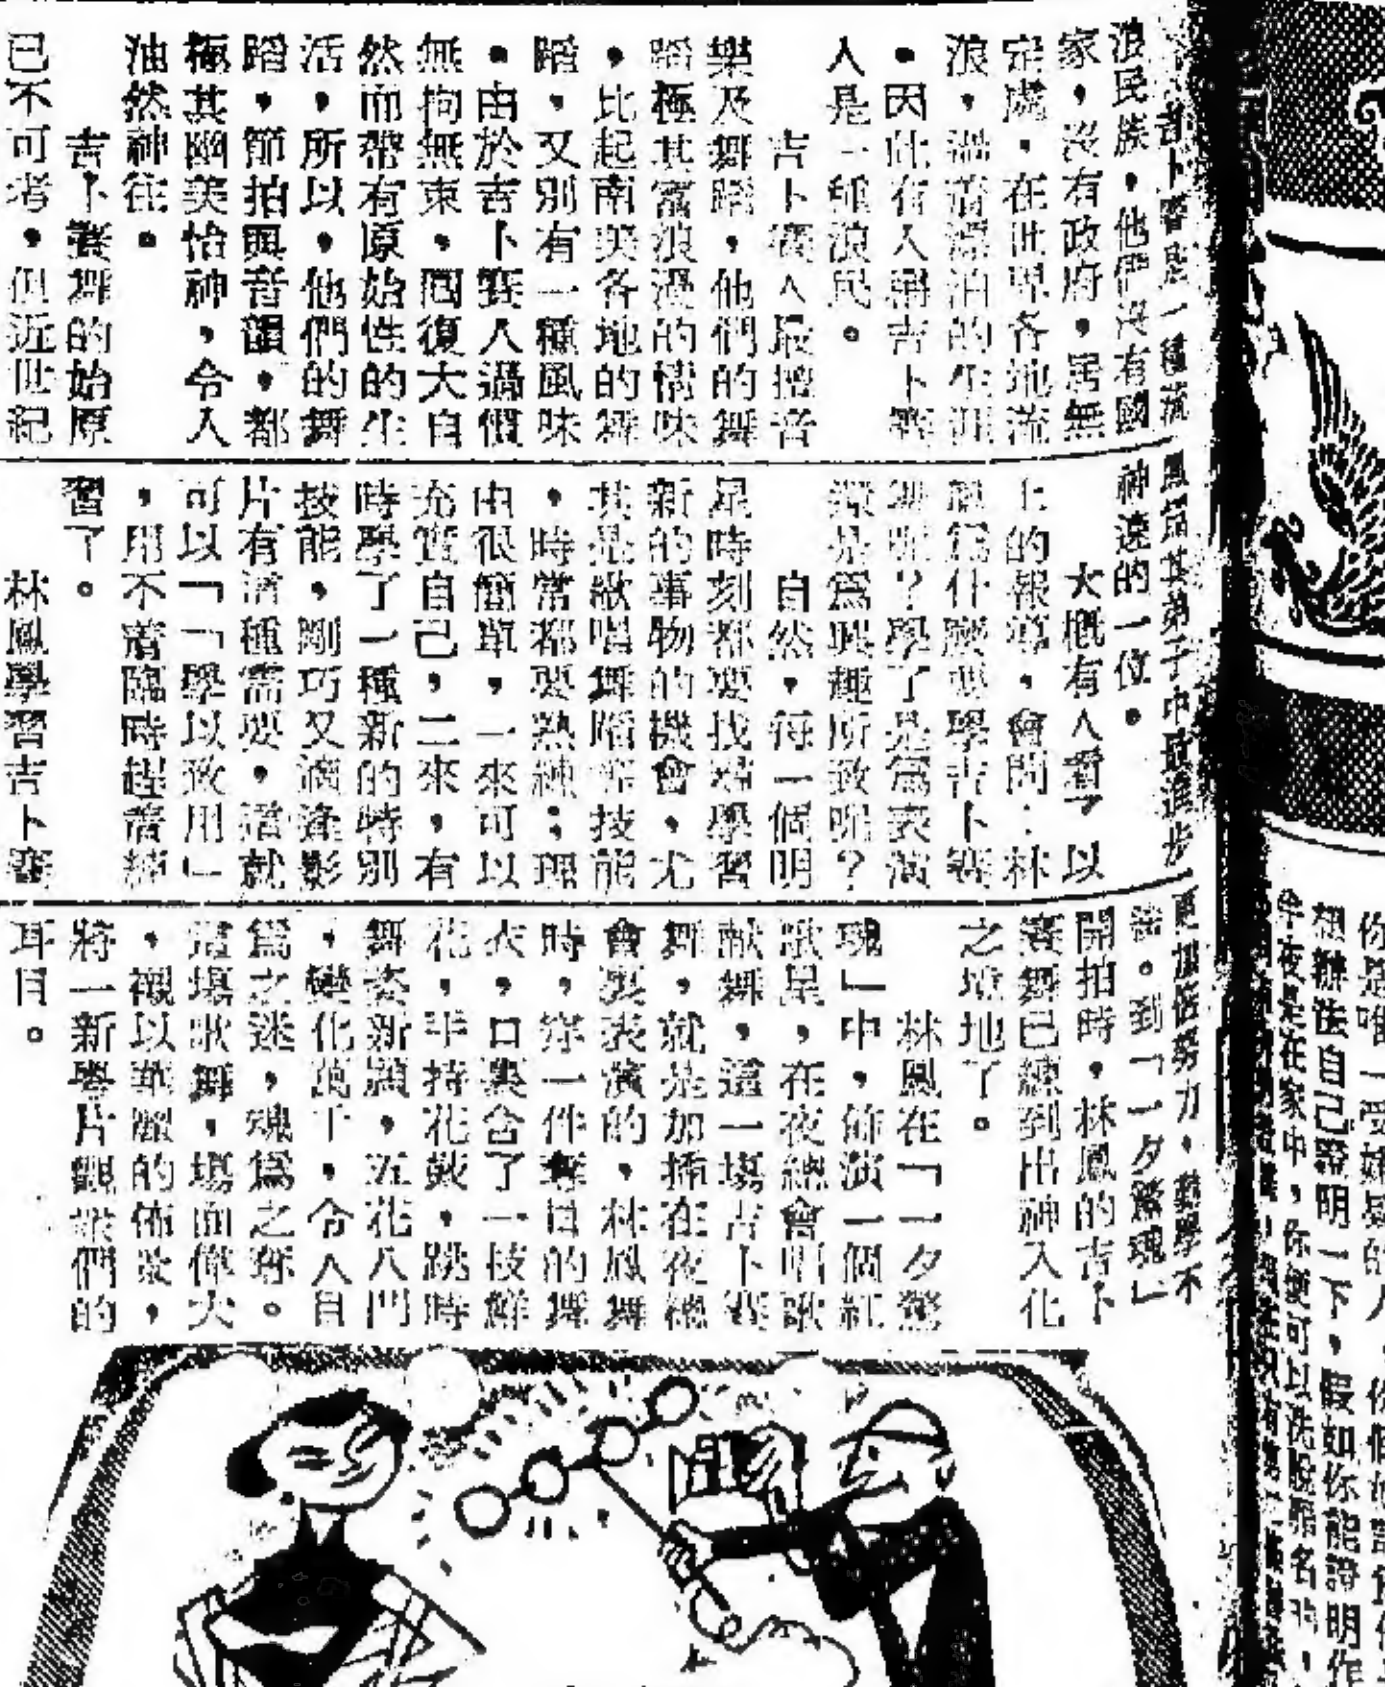 吉卜賽是一種流
浪民族，他們沒有國
家，沒有政府，居無
定處，在世界各地流
浪，過着漂泊的生涯
。因此有人謂吉卜賽
人是一種浪民。
吉卜賽人最擅音
樂及舞蹈，他們的舞
蹈極其富浪漫的情味
，比起南美各地的舞
蹈，又別有一種風味
。由於吉卜賽人過慣
無拘無束，回復大自
然而帶有原始性的生
活，所以，他們的舞
蹈，節拍與音韻，都
極其幽美怡神，令人
油然神往。
吉卜賽舞的始原
已不可考，但近世紀
鳳爲其弟子中最進步
神速的一位。
大概有人看了以
上的報導，會問：林
鳳爲什麼要學吉卜賽
舞呢？學了是爲表演
還是爲興趣所致呢？
自然，每一個明
星時刻都要找尋學習
新的事物的機會，尤
其是歌唱舞蹈等技能
，時常都要熟練；理
由很簡單，一來可以
充實自己，二來，有
時學了一種新的特別
技能，剛巧又適逢影
片有這種需要，這就
可以「學以致用」
，用不着臨時趕着練
習了。
林鳳學習吉卜賽
更加倍努力，勤學不
。到「一夕驚魂」
開拍時，林鳳的吉卜
賽舞已練到出神入化
之境地了。
林鳳在「一夕驚
魂」中，飾演一個紅
歌星，在夜總會唱歌
献舞，這一場吉卜賽
舞，就是加插在夜總
會裏表演的，林鳳舞
時，穿一件奪目的舞
衣，口裏含了一枝鮮
花，手持花鼓，跳時
舞姿新穎，五花八門
，變化萬千，令人目
爲之迷，魂爲之奪。
這場歌舞，場面偉大
，襯以華麗的佈景，
將一新粵片觀衆們的
耳目。
你是唯一受嫌疑的人，
想辦法自己證明一下，假如你能證明
半夜是在家中，你便可以洗脫罪名